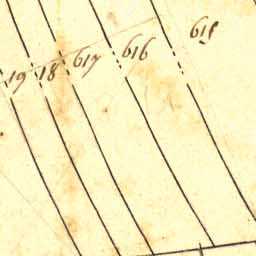 19 18 617 616 615